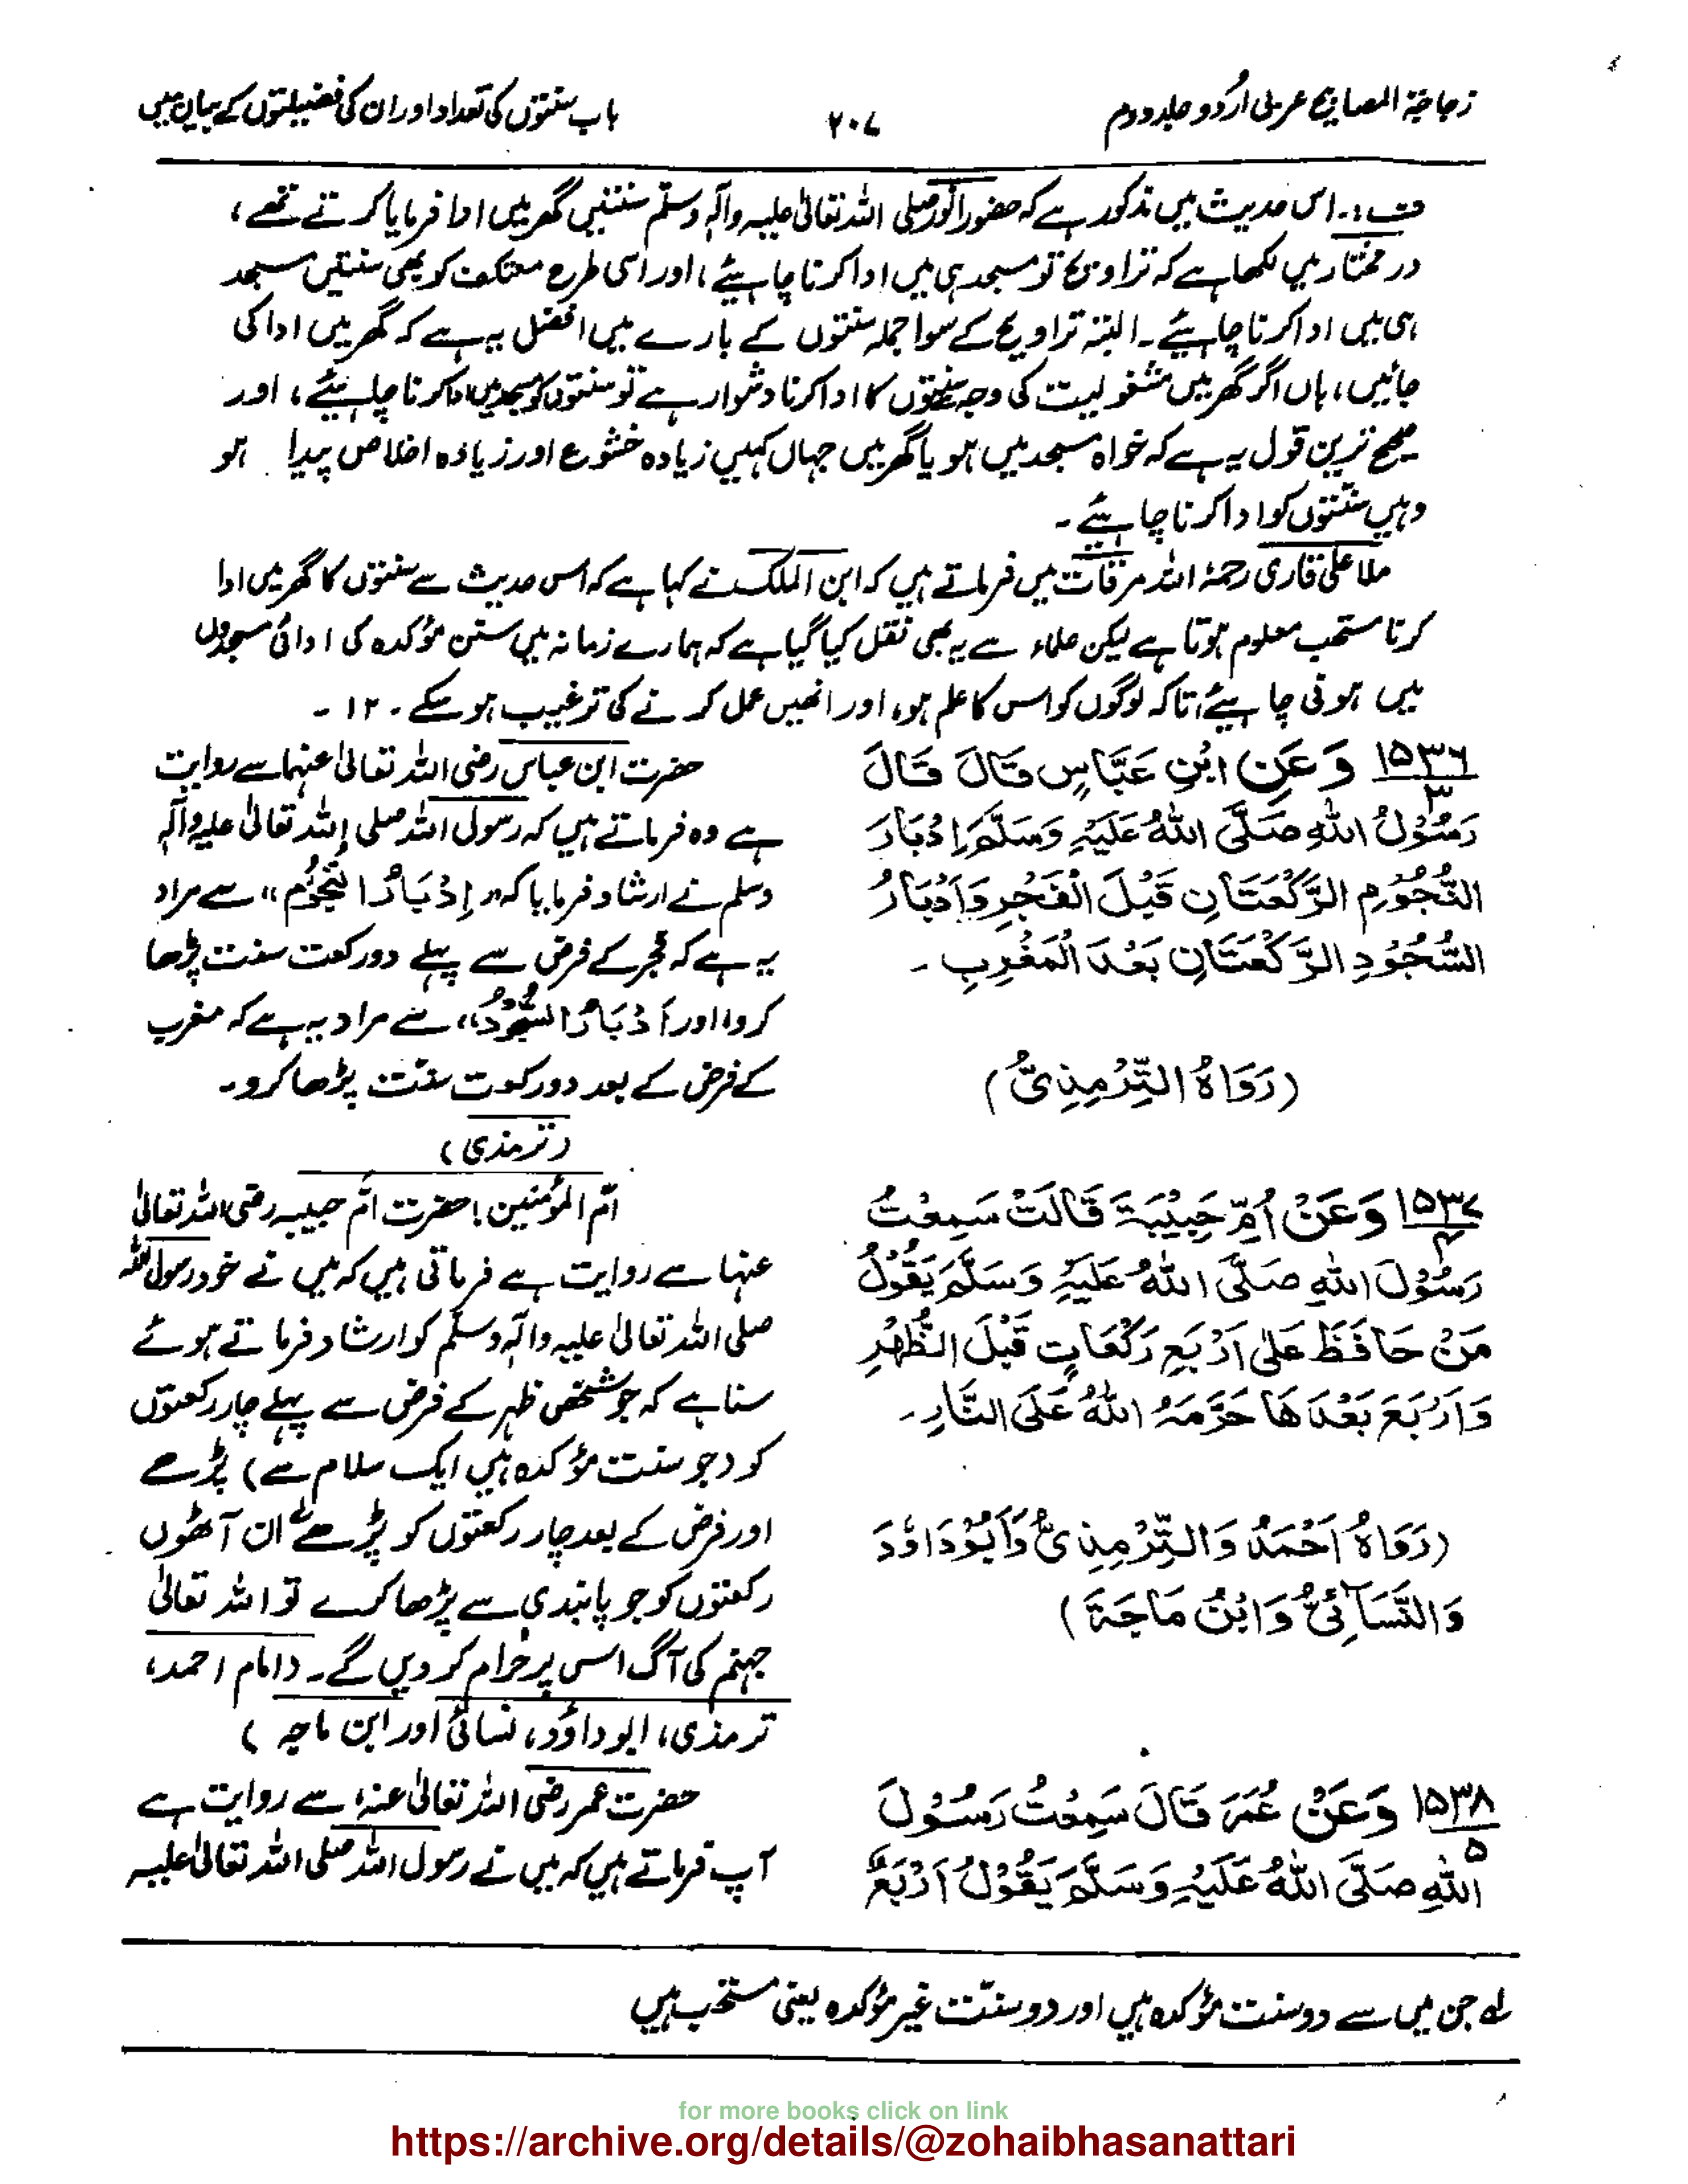 زجاجۃ المصابیح عربی اُردو جلد دوم
۲۰۷
باب سنتوں کی تعداد اور ان کی فضیلتوں کے بیان میں
ف:۔ اس حدیث میں مذکور ہے کہ حضور انور صلی اللہ تعالیٰ علیہ وآلہ وسلّم سنتیں گھر میں ادا فرمایا کرتے تھے،
در مختار میں لکھا ہے کہ تراویح تو مسجد ہی میں ادا کرنا چاہیئے، اور اسی طرح معتکف کو بھی سنتیں مسجد
ہی میں ادا کرنا چاہیئے۔ البتہ تراویح کے سوا جملہ سنتوں کے بارے میں افضل یہ ہے کہ گھر میں ادا کی
جائیں، ہاں اگر گھر میں مشغولیت کی وجہ سنتوں کا ادا کرنا دشوار ہے تو سنتوں کو مسجد میں ادا کرنا چاہیئے، اور
صحیح ترین قول یہ ہے کہ خواہ مسجد میں ہو یا گھر میں جہاں کہیں زیادہ خشوع اور زیادہ اخلاص پیدا ہو
وہیں سنتوں کو ادا کرنا چاہیئے۔
ملا علی قاری رحمۂ اللہ مرقات میں فرماتے ہیں کہ ابن الملک نے کہا ہے کہ اس حدیث سے سنتوں کا گھر میں ادا
کرنا مستحب معلوم ہوتا ہے لیکن علماء سے یہ بھی نقل کیا گیا ہے کہ ہمارے زمانہ میں سنن مؤکدہ کی ادائی مسجدوں
میں ہونی چاہیئے، تاکہ لوگوں کو اس کا علم ہو، اور انھیں عمل کرنے کی ترغیب ہو سکے۔ ۱۲۔
۱۵۳۶ وَعَنِ ابْنِ عَبَّاسٍ قَالَ قَالَ
۳
رَسُوْلُ اللهِ صَلَّى اللهُ عَلَيْهِ وَسَلَّمَ إِدْبَارَ
النُّجُوْمِ الرَّكْعَتَانِ قَبْلَ الْفَجْرِ وَاَدْبَارُ
السُّجُوْدِ الرَّكْعَتَانِ بَعْدَ الْمَغْرِبِ۔
(رَوَاهُ التِّرْمِذِىُّ)
حضرت ابن عباس رضی اللہ تعالیٰ عنہما سے روایت
ہے وہ فرماتے ہیں کہ رسول اللہ صلی اللہ تعالیٰ علیہ وآلہ
وسلم نے ارشاد فرمایا کہ ”إِدْبَارُ النُّجُوْمِ“ سے مراد
یہ ہے کہ فجر کے فرض سے پہلے دو رکعت سنت پڑھا
کرو، اور اَدْبَارُ السُّجُوْدِ“ سے مراد یہ ہے کہ مغرب
کے فرض کے بعد دو رکعت سنت پڑھا کرو۔
(ترمذی)
۱۵۳۷ وَعَنْ اُمِّ حَبِيْبَةَ قَالَتْ سَمِعْتُ
۴
رَسُوْلَ اللهِ صَلَّى اللهُ عَلَيْهِ وَسَلَّمَ يَقُوْلُ
مَنْ حَافَظَ عَلٰى اَرْبَعِ رَكْعَاتٍ قَبْلَ الظُّهْرِ
وَاَرْبَعَ بَعْدَهَا حَرَّمَهُ اللهُ عَلَى النَّارِ۔
(رَوَاهُ اَحْمَدُ وَالتِّرْمِذِىُّ وَاَبُوْدَاؤُدَ
وَالنَّسَآئِىُّ وَابْنُ مَاجَةَ)
امّ المؤمنین حضرت امّ حبیبہ رضی اللہ تعالیٰ
عنہا سے روایت ہے فرماتی ہیں کہ میں نے خود رسول اللہ
صلی اللہ تعالیٰ علیہ وآلہ وسلّم کو ارشاد فرماتے ہوئے
سنا ہے کہ جو شخص ظہر کے فرض سے پہلے چار رکعتوں
کو (جو سنت مؤکدہ ہیں ایک سلام سے) پڑھے
اور فرض کے بعد چار رکعتوں کو پڑھے لہ ان آٹھوں
رکعتوں کو جو پابندی سے پڑھا کرے تو اللہ تعالیٰ
جہنم کی آگ اس پر حرام کر دیں گے۔ (امام احمد،
ترمذی، ابو داؤد، نسائی اور ابن ماجہ)
۱۵۳۸ وَعَنْ عُمَرَ قَالَ سَمِعْتُ رَسُوْلَ
۵
اللهِ صَلَّى اللهُ عَلَيْهِ وَسَلَّمَ يَقُوْلُ اَرْبَعٌ
حضرت عمر رضی اللہ تعالیٰ عنہ، سے روایت ہے
آپ فرماتے ہیں کہ میں نے رسول اللہ صلی اللہ تعالیٰ علیہ
لہ جن میں سے دو سنت مؤکدہ ہیں اور دو سنّت غیر مؤکدہ یعنی مستحب ہیں
for more books click on link
https://archive.org/details/@zohaibhasanattari